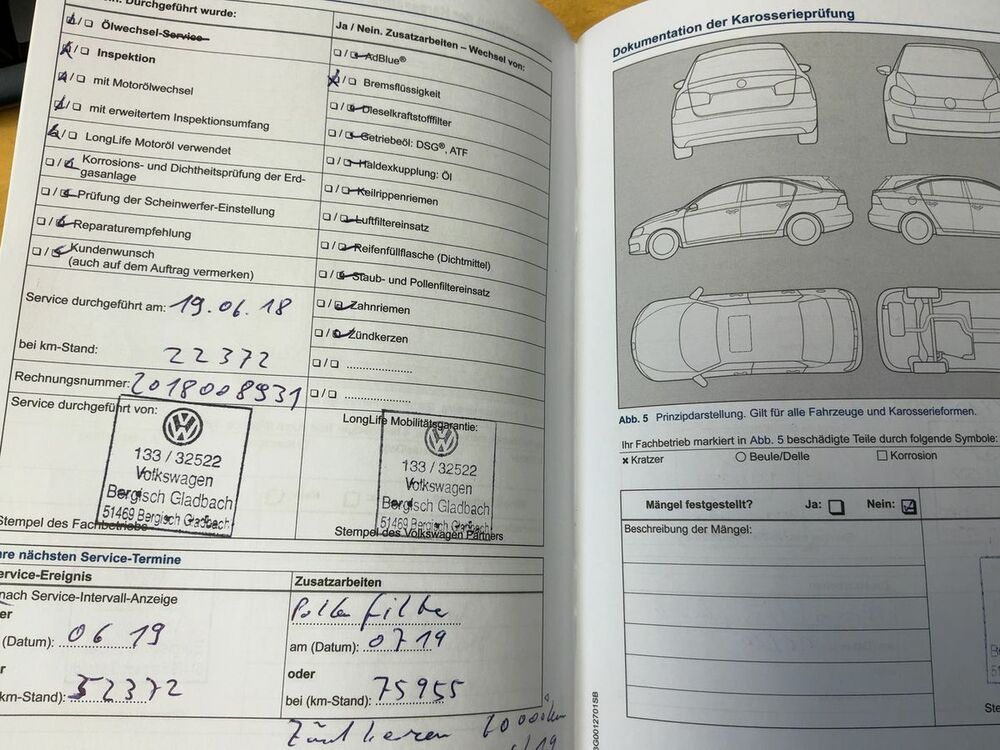 Durchgeführt wurde:
Ölwechsel-Service
Inspektion
mit Motorölwechsel
mit erweitertem Inspektionsumfang
LongLife Motoröl verwendet
Korrosions- und Dichtheitsprüfung der Erd-
gasanlage
Prüfung der Scheinwerfer-Einstellung
Reparaturempfehlung
Kundenwunsch
(auch auf dem Auftrag vermerken)
Service durchgeführt am: 19.06.18
bei km-Stand: 22372
Rechnungsnummer: 2018008931
Service durchgeführt von:
133 / 32522
Volkswagen
Bergisch Gladbach
51469 Bergisch Gladbach
Stempel des Fachbetriebs
Ja / Nein. Zusatzarbeiten – Wechsel von:
AdBlue®
Bremsflüssigkeit
Dieselkraftstofffilter
Getriebeöl: DSG®, ATF
Haldexkupplung: Öl
Keilrippenriemen
Luftfiltereinsatz
Reifenfüllflasche (Dichtmittel)
Staub- und Pollenfiltereinsatz
Zahnriemen
Zündkerzen
LongLife Mobilitätsgarantie:
133 / 32522
Volkswagen
Bergisch Gladbach
51469 Bergisch Gladbach
Stempel des Volkswagen Partners
nächsten Service-Termine
Service-Ereignis
nach Service-Intervall-Anzeige
(Datum): 06 19
km-Stand): 52372
Zusatzarbeiten
Pollenfilter
am (Datum): 07 19
oder
bei (km-Stand): 75955
Zündkerzen 60000km
Dokumentation der Karosserieprüfung
Abb. 5 Prinzipdarstellung. Gilt für alle Fahrzeuge und Karosserieformen.
Ihr Fachbetrieb markiert in Abb. 5 beschädigte Teile durch folgende Symbole:
x Kratzer
Beule/Delle
Korrosion
Mängel festgestellt? Ja: Nein:
Beschreibung der Mängel: